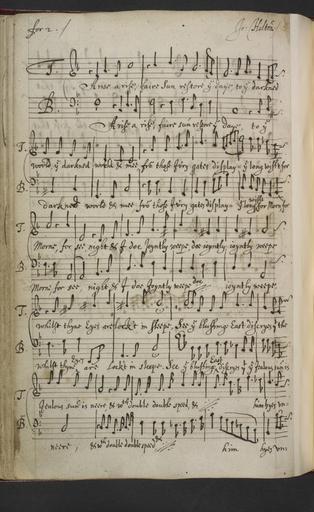 for 2:/ Jo: Hilton
T. Arise arise, faire Sun restore yͤ daye, to yͤ darkned
B. Arise arise, faire sun restore yͤ daye, to yͤ
T. world yͤ darkned world & mee, from those fiery gates display yͤ long wisht for
B. darkned world & mee from those fiery gates display yͤ long wisht for Morn, for
T. Morne, for see night & I doe ioyntly weepe doe ioyntly, ioyntly weepe
B. Morne, for see night & I doe ioyntly weepe doe ioyntly, weepe
T. whilst thyne Eyes are Lockt in sleepe. See yͤ blushing East discryes yͤ the
B. whilst thyne Eyes are Lockt in sleepe. See yͤ blushing East discryes yͤ yͤ Jealous sun is
T. Jealous sun is neere & wᵗʰ double double speed, & him hyes vn-
B. neere, & wᵗʰ double double speed, & him hyes vn